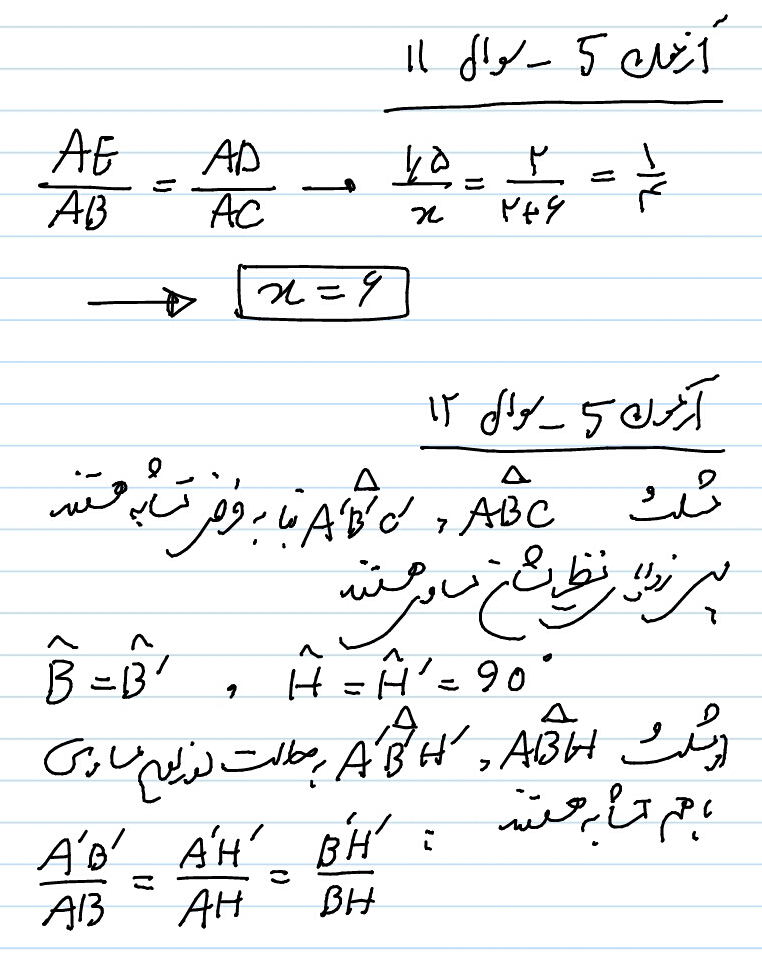 آزمون 5 - سوال ۱۱
AE/AB = AD/AC → ۱٫۵/x = ۲/(۲+۶) = ۱/۴
→ x = ۶
آزمون 5 - سوال ۱۲
مثلث ABC و A'B'C' بنا به فرض متشابه هستند
پس زوایای نظیرشان مساوی هستند
B̂ = B̂' , Ĥ = Ĥ' = 90°
دو مثلث ABH و A'B'H' به حالت دو زاویه مساوی
با هم متشابه هستند :
A'B'/AB = A'H'/AH = B'H'/BH